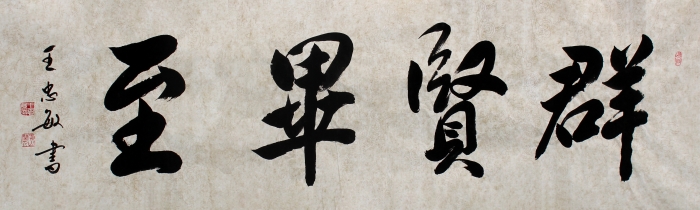 群賢畢至
王忠敏書